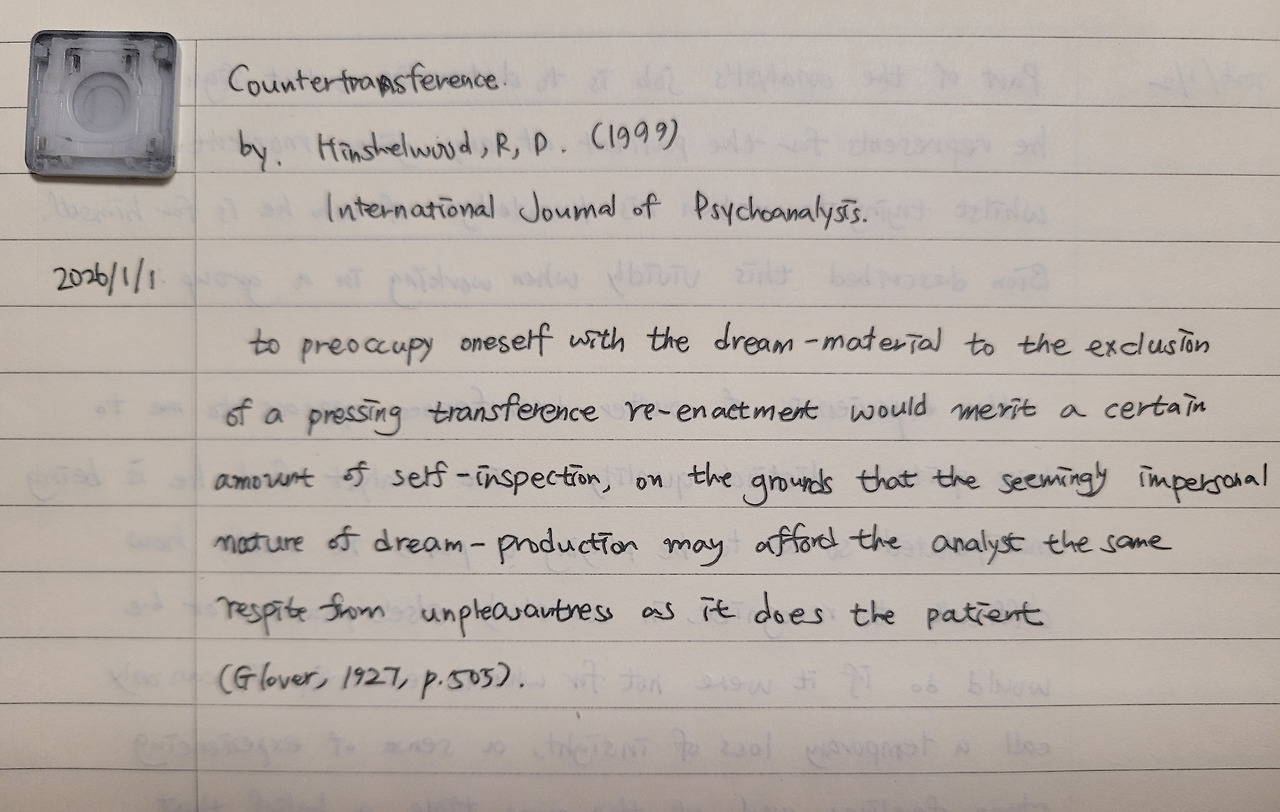 Countertransference.
by. Hinshelwood, R, D. (1999)
International Journal of Psychoanalysis.
2026/1/1
to preoccupy oneself with the dream-material to the exclusion
of a pressing transference re-enactment would merit a certain
amount of self-inspection, on the grounds that the seemingly impersonal
nature of dream-production may afford the analyst the same
respite from unpleasantness as it does the patient
(Glover, 1927, p.505).